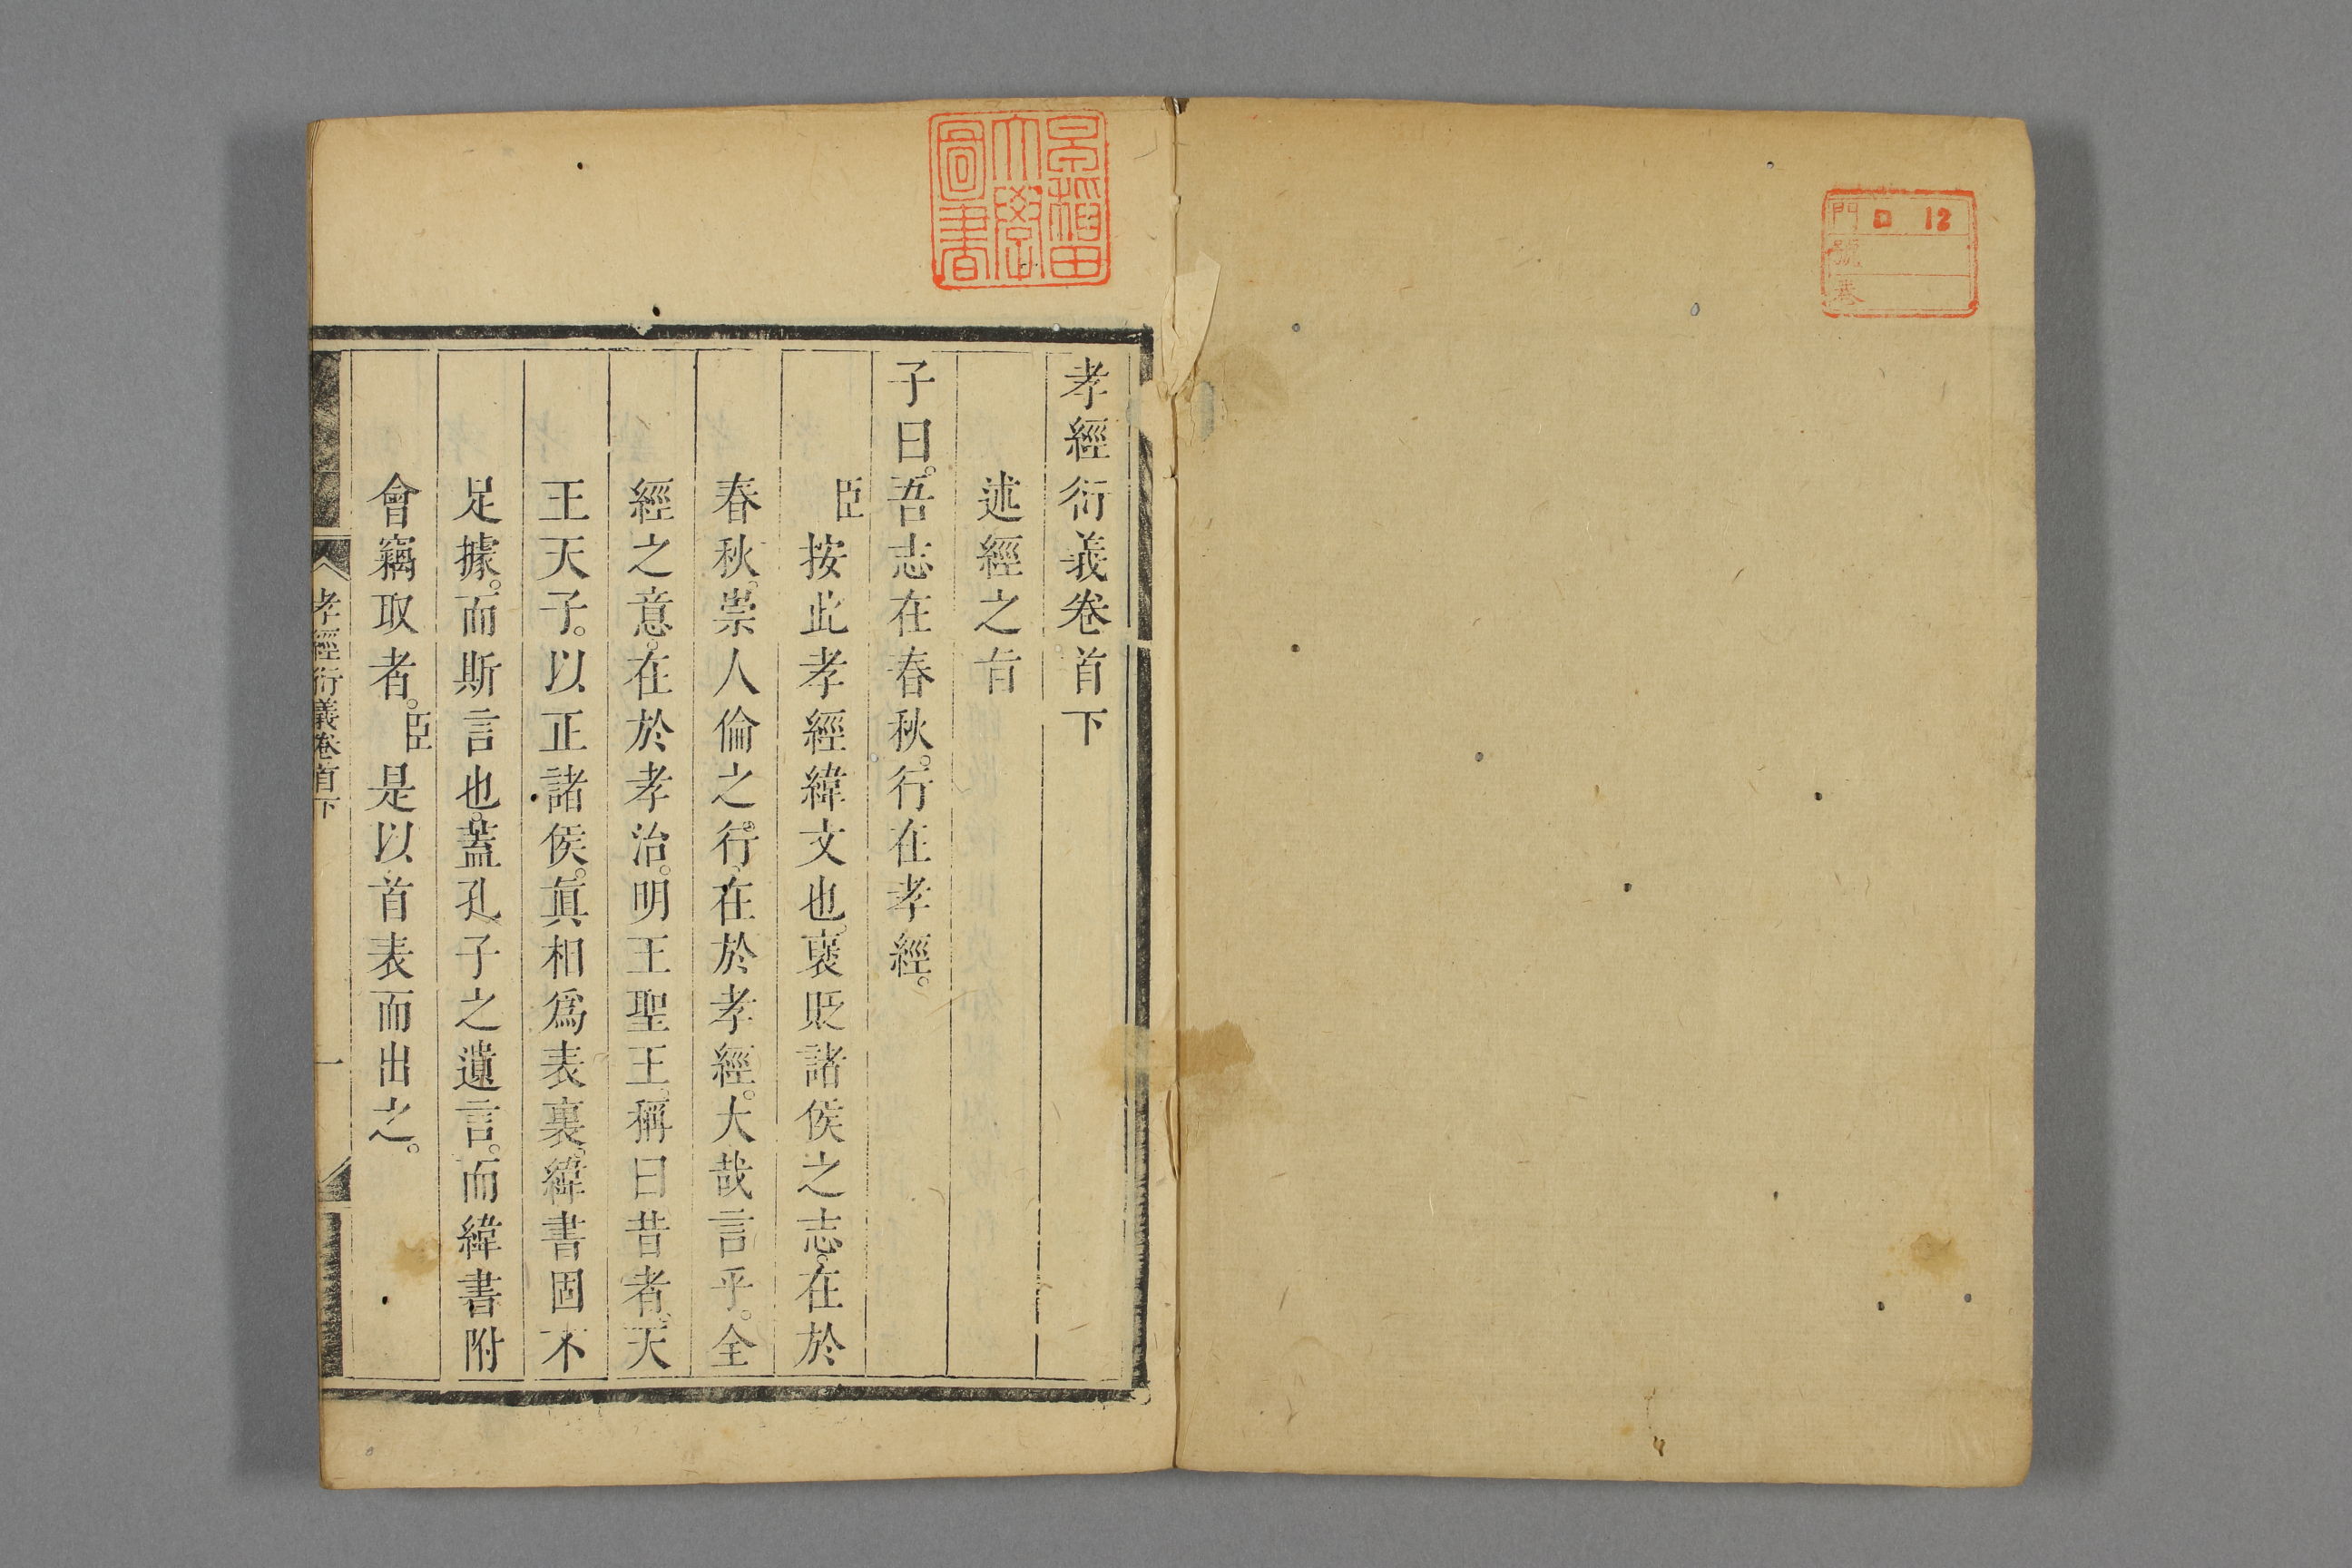 門 ロ 12
號
卷
早稲田
大學
圖書
孝經衍義卷首下
述經之旨
子曰。吾志在春秋。行在孝經。
臣按此孝經緯文也。襃貶諸侯之志。在於
春秋。崇人倫之行。在於孝經。大哉言乎。全
經之意。在於孝治。明王聖王。稱曰昔者。天
王天子。以正諸侯。眞相爲表裏。緯書固不
足據。而斯言也。蓋孔子之遺言。而緯書附
會竊取者。臣是以首表而出之。
孝經衍義卷首下
一